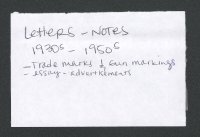 Letters - Notes
1930s - 1950s
- Trade marks & Gun markings
- essay - advertisements